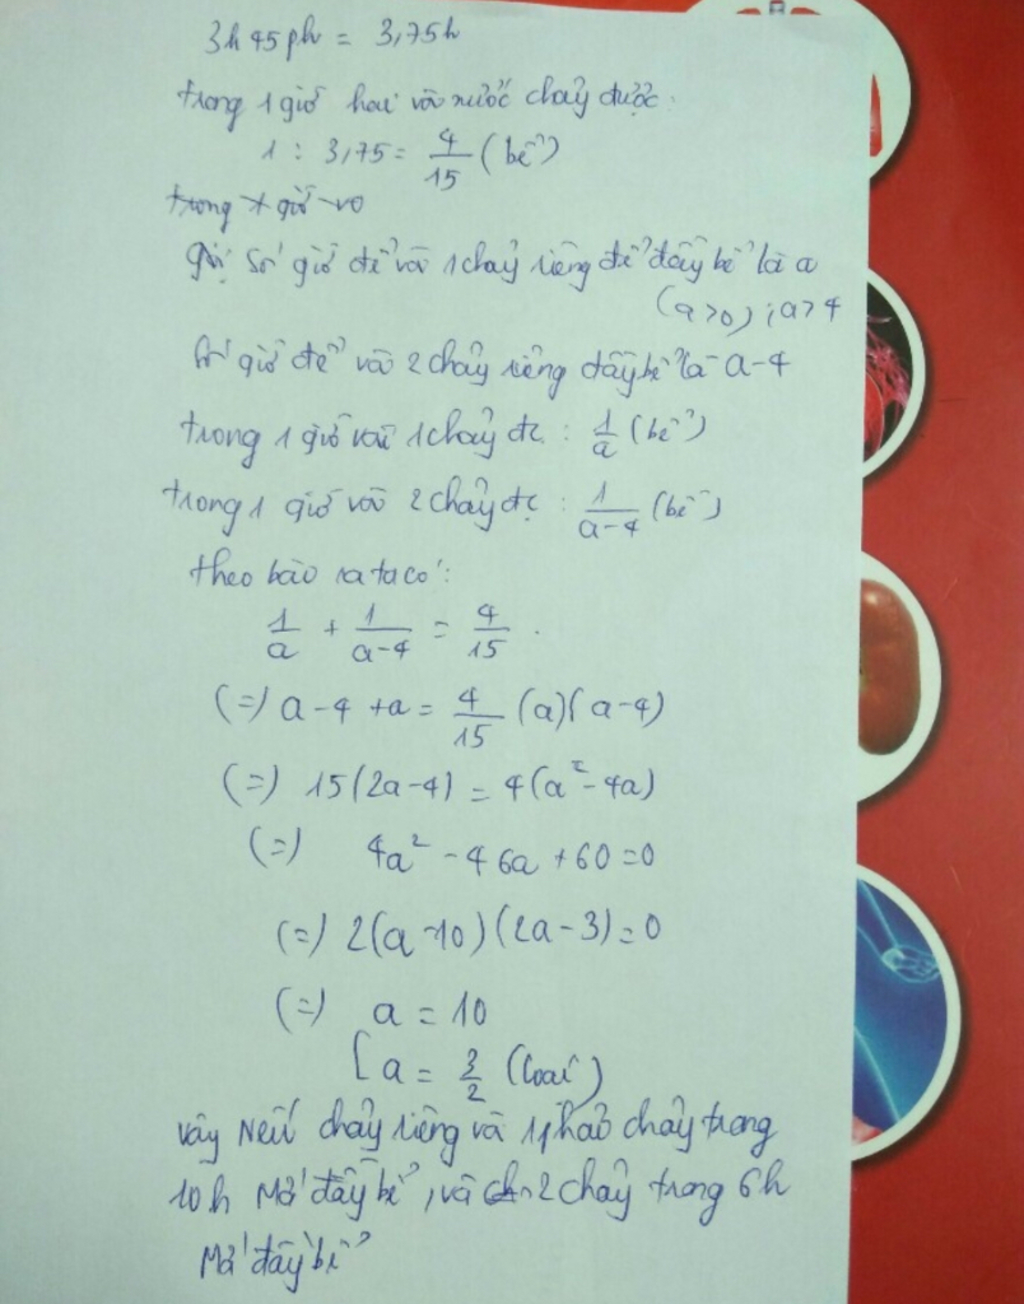 3h 45ph = 3,75h
trong 1 giờ hai vòi nước chảy được:
1 : 3,75 = 4/15 (bể)
trong 1 giờ vo
gọi số giờ để vòi 1 chảy riêng để đầy bể là a
(a>0) ; a>4
Số giờ để vòi 2 chảy riêng đầy bể là a-4
trong 1 giờ vòi 1 chảy đc : 1/a (bể)
trong 1 giờ vòi 2 chảy đc : 1/(a-4) (bể)
theo bài ra ta có :
1/a + 1/(a-4) = 4/15 .
(=) a-4 +a = 4/15 (a)(a-4)
(=) 15(2a-4) = 4(a²-4a)
(=) 4a² -46a +60=0
(=) 2(a-10)(2a-3)=0
(=) a = 10
[ a = 3/2 (loại)
vậy nếu chảy riêng vòi 1 phải chảy trong
10h mới đầy bể , vòi 2 chảy trong 6h
mới đầy bể